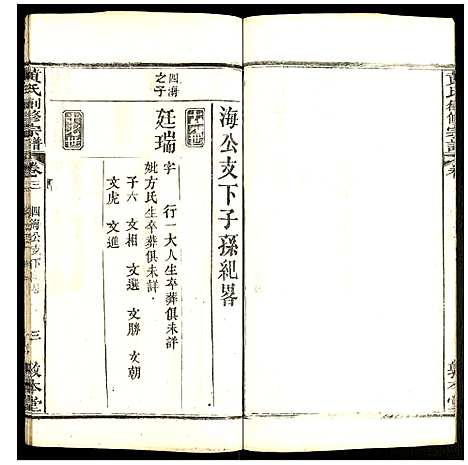 黃氏創修宗譜 卷
敦本堂
海公支下子孫紀畧
四海之子
廷瑞
字 行一大人生卒葬俱未詳
妣方氏生卒葬俱未詳
子六 文相 文選 文勝 文朝
文虎 文進
黃氏創修宗譜 卷三 四海公支下 三 敦本堂